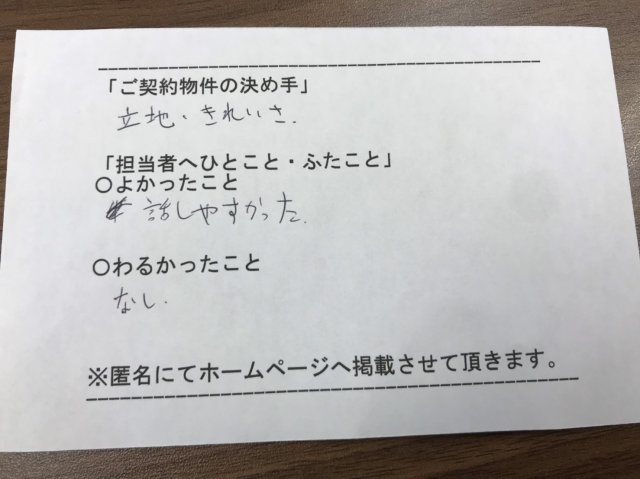 「ご契約物件の決め手」
立地・きれいさ.
「担当者へひとこと・ふたこと」
○よかったこと
話しやすかった.
○わるかったこと
なし.
※匿名にてホームページへ掲載させて頂きます。